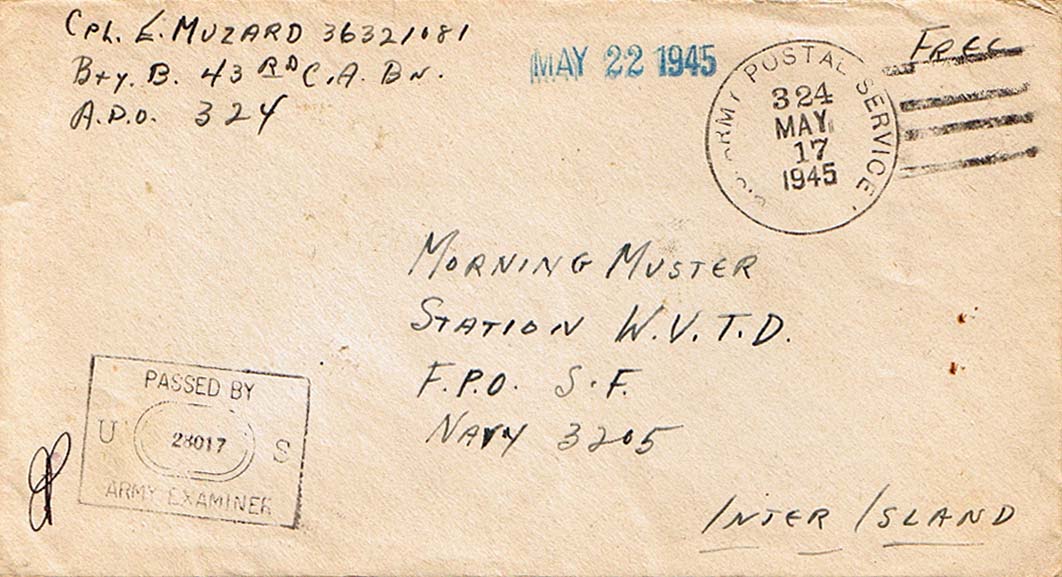 Cpl. E. MUZARD 36321081
Bty. B. 43RD C.A. BN.
A.P.O. 324
MAY 22 1945
U.S. ARMY POSTAL SERVICE
324
MAY
17
1945
FREE
MORNING MUSTER
STATION W.V.T.D.
F.P.O. S.F.
NAVY 3205
PASSED BY
U 28017 S
ARMY EXAMINER
INTER ISLAND